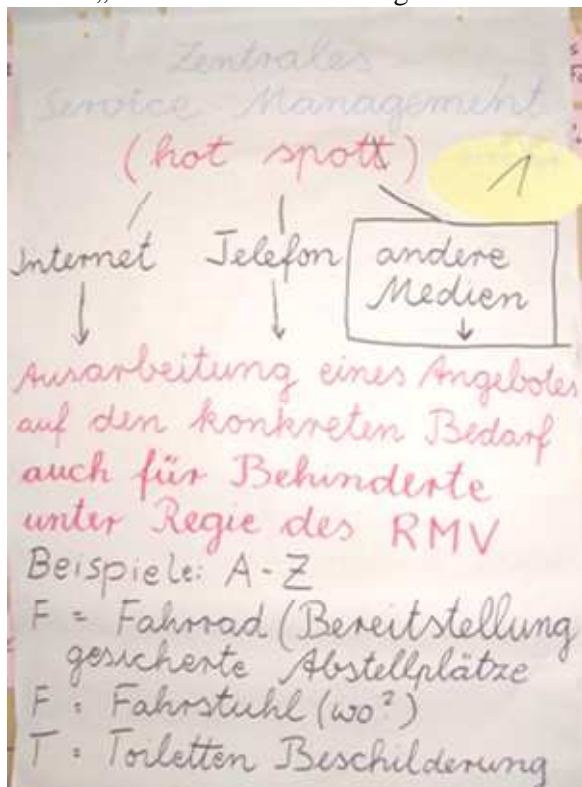 Zentrales
Service Management
(hot spott)
1
Internet Telefon andere
Medien
Ausarbeitung eines Angebotes
auf den konkreten Bedarf
auch für Behinderte
unter Regie des RMV
Beispiele: A-Z
F = Fahrrad (Bereitstellung
gesicherte Abstellplätze
F = Fahrstuhl (wo?)
T = Toiletten Beschilderung